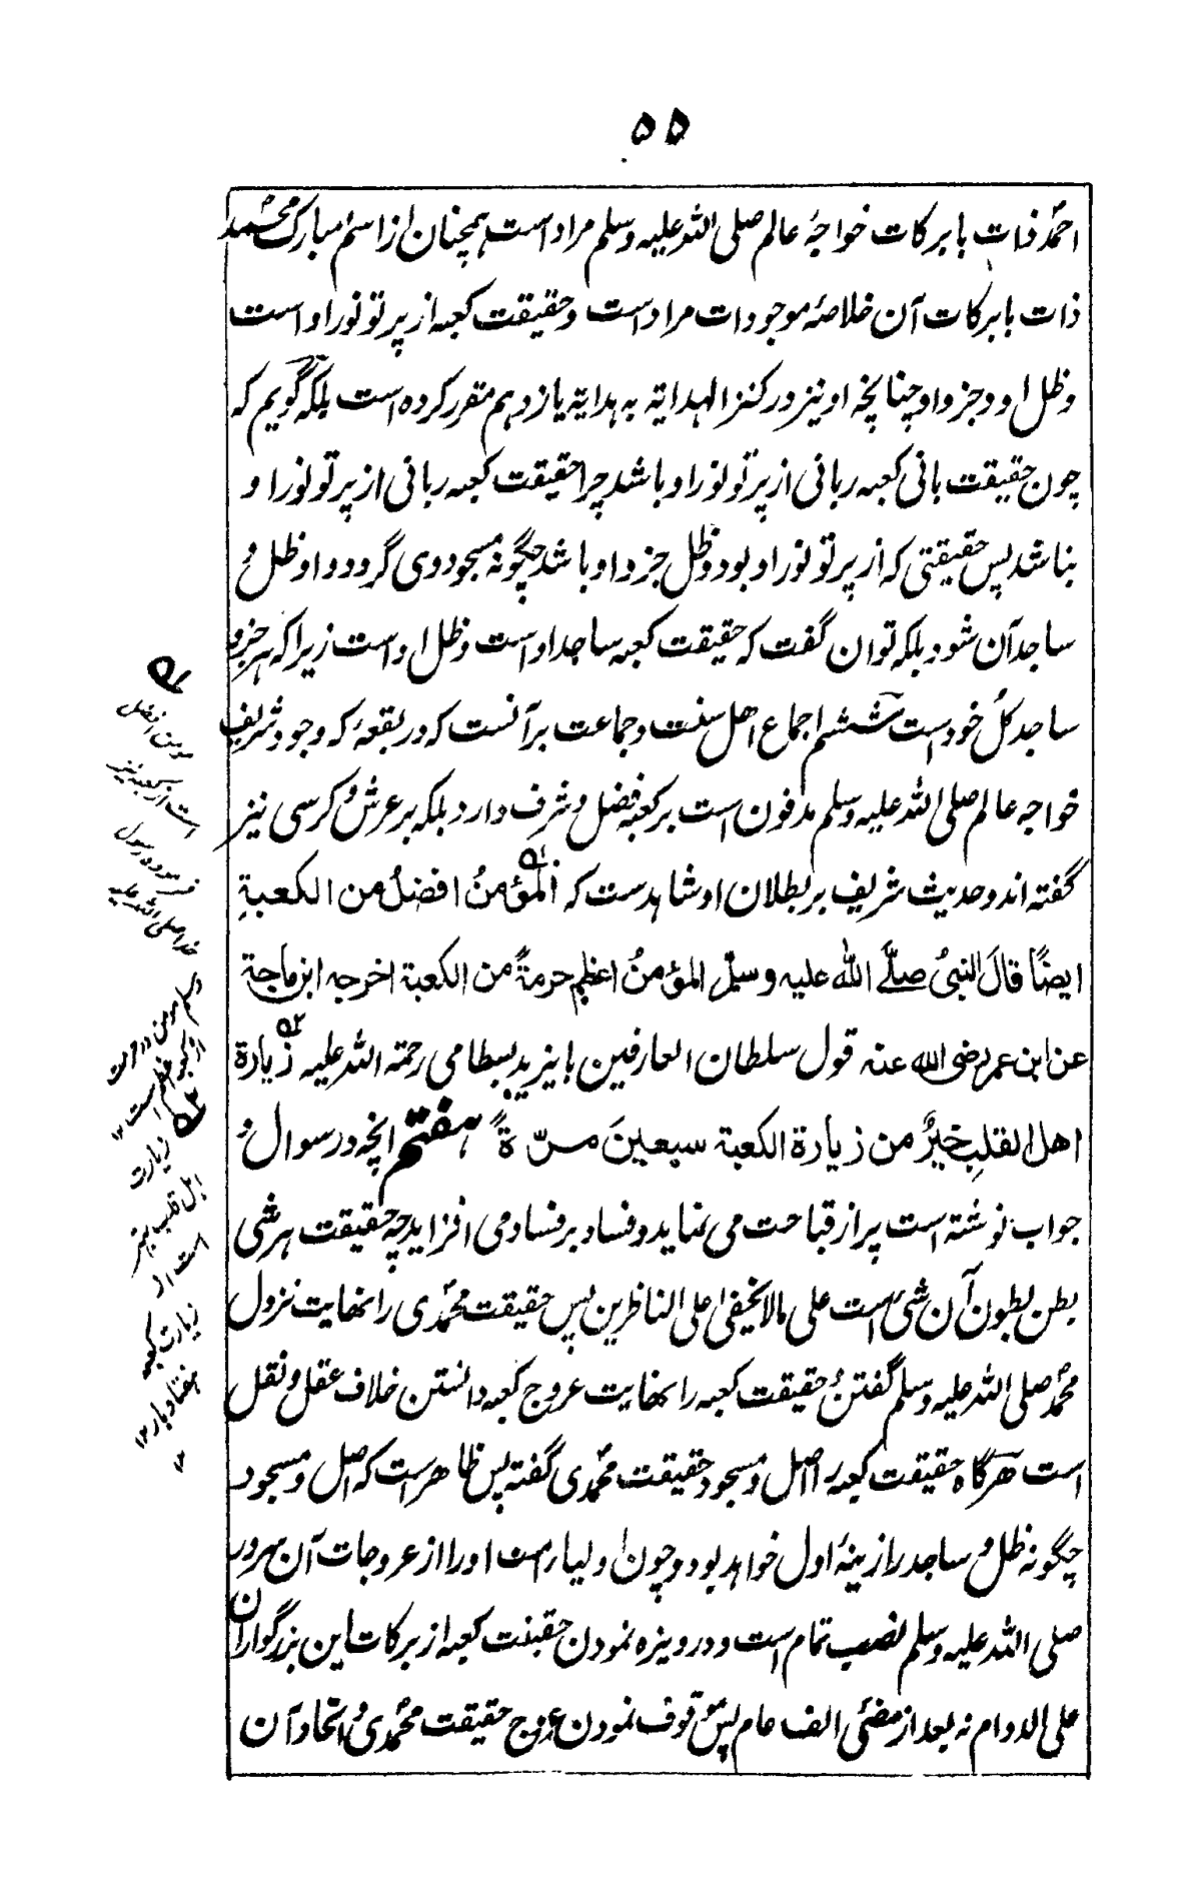 ۵۵
احمد ذات بابرکات خواجهٔ عالم صلی الله علیه وسلم مراد است همچنان از اسم مبارک محمد
ذات بابرکات آن خلاصهٔ موجودات مراد است وحقیقت کعبه از پرتو نور او است
وظل او وجزو او چنانچه او نیز در کنز الهدایة به هدایة یازدهم مقرر کرده است بلکه گویم که
چون حقیقت بانی کعبه ربانی از پرتو نور او باشد چرا حقیقت کعبه ربانی از پرتو نور او
نباشد پس حقیقتی که از پرتو نور او بود وظل جزو او باشد چگونه مسجود وی گردد و او ظل و
ساجد آن شود بلکه توان گفت که حقیقت کعبه ساجد او است وظل او است زیرا که هر جزو
ساجد کل خود است ششم اجماع اهل سنت وجماعت بر آنست که در بقعهٔ که وجود شریف
خواجه عالم صلی الله علیه وسلم مدفون است بر کعبه فضل و شرف دارد بلکه بر عرش و کرسی نیز
گفته اند وحدیث شریف بر بطلان او شاهدست که المؤمنُ افضلُ من الکعبةِ
ایضًا قالَ النبیُ صلَّے الله علیه وسلم المؤمنُ اعظم حرمةً من الکعبة اخرجه ابن ماجة
عن ابن عمر رضی الله عنه قول سلطان العارفین بایزید بسطامی رحمة الله علیه زیارة
اهل القلبِ خیرٌ من زیارة الکعبة سبعینَ مرّةً هفتم انچه در سوال و
جواب نوشته است پر از قباحت می نماید وفساد بر فساد می افزاید چه حقیقت هر شی
بطن بطون آن شی است علی مالا یخفی علی الناظرین پس حقیقت محمدی را نهایت نزول
محمد صلی الله علیه وسلم گفتن و حقیقت کعبه را نهایت عروج کعبه دانستن خلاف عقل و نقل
است هرگاه حقیقت کعبه را اصل و مسجود حقیقت محمدی گفته پس ظاهرست که اصل و مسجود
چگونه ظل و ساجد را زینهٔ اول خواهد بود وچون اولیا امت او را از عروجات آن سرور
صلی الله علیه وسلم نصیب تمام است ودریوزه نمودن حقیقت کعبه از برکات این بزرگواران
علی الدوام نه بعد از مضئ الف عام پس موقوف نمودن عروج حقیقت محمدی و اتحاد آن
۵۱
مومن افضل
است از کعبه نیز
فرموده رسول
خدا صلی الله علیه
وسلم مومن در حرمت
از کعبه اعظم است ۱۲
۵۲
زیارت
اهل قلب بهتر
است از
زیارت کعبه
هفتاد بار ۱۲